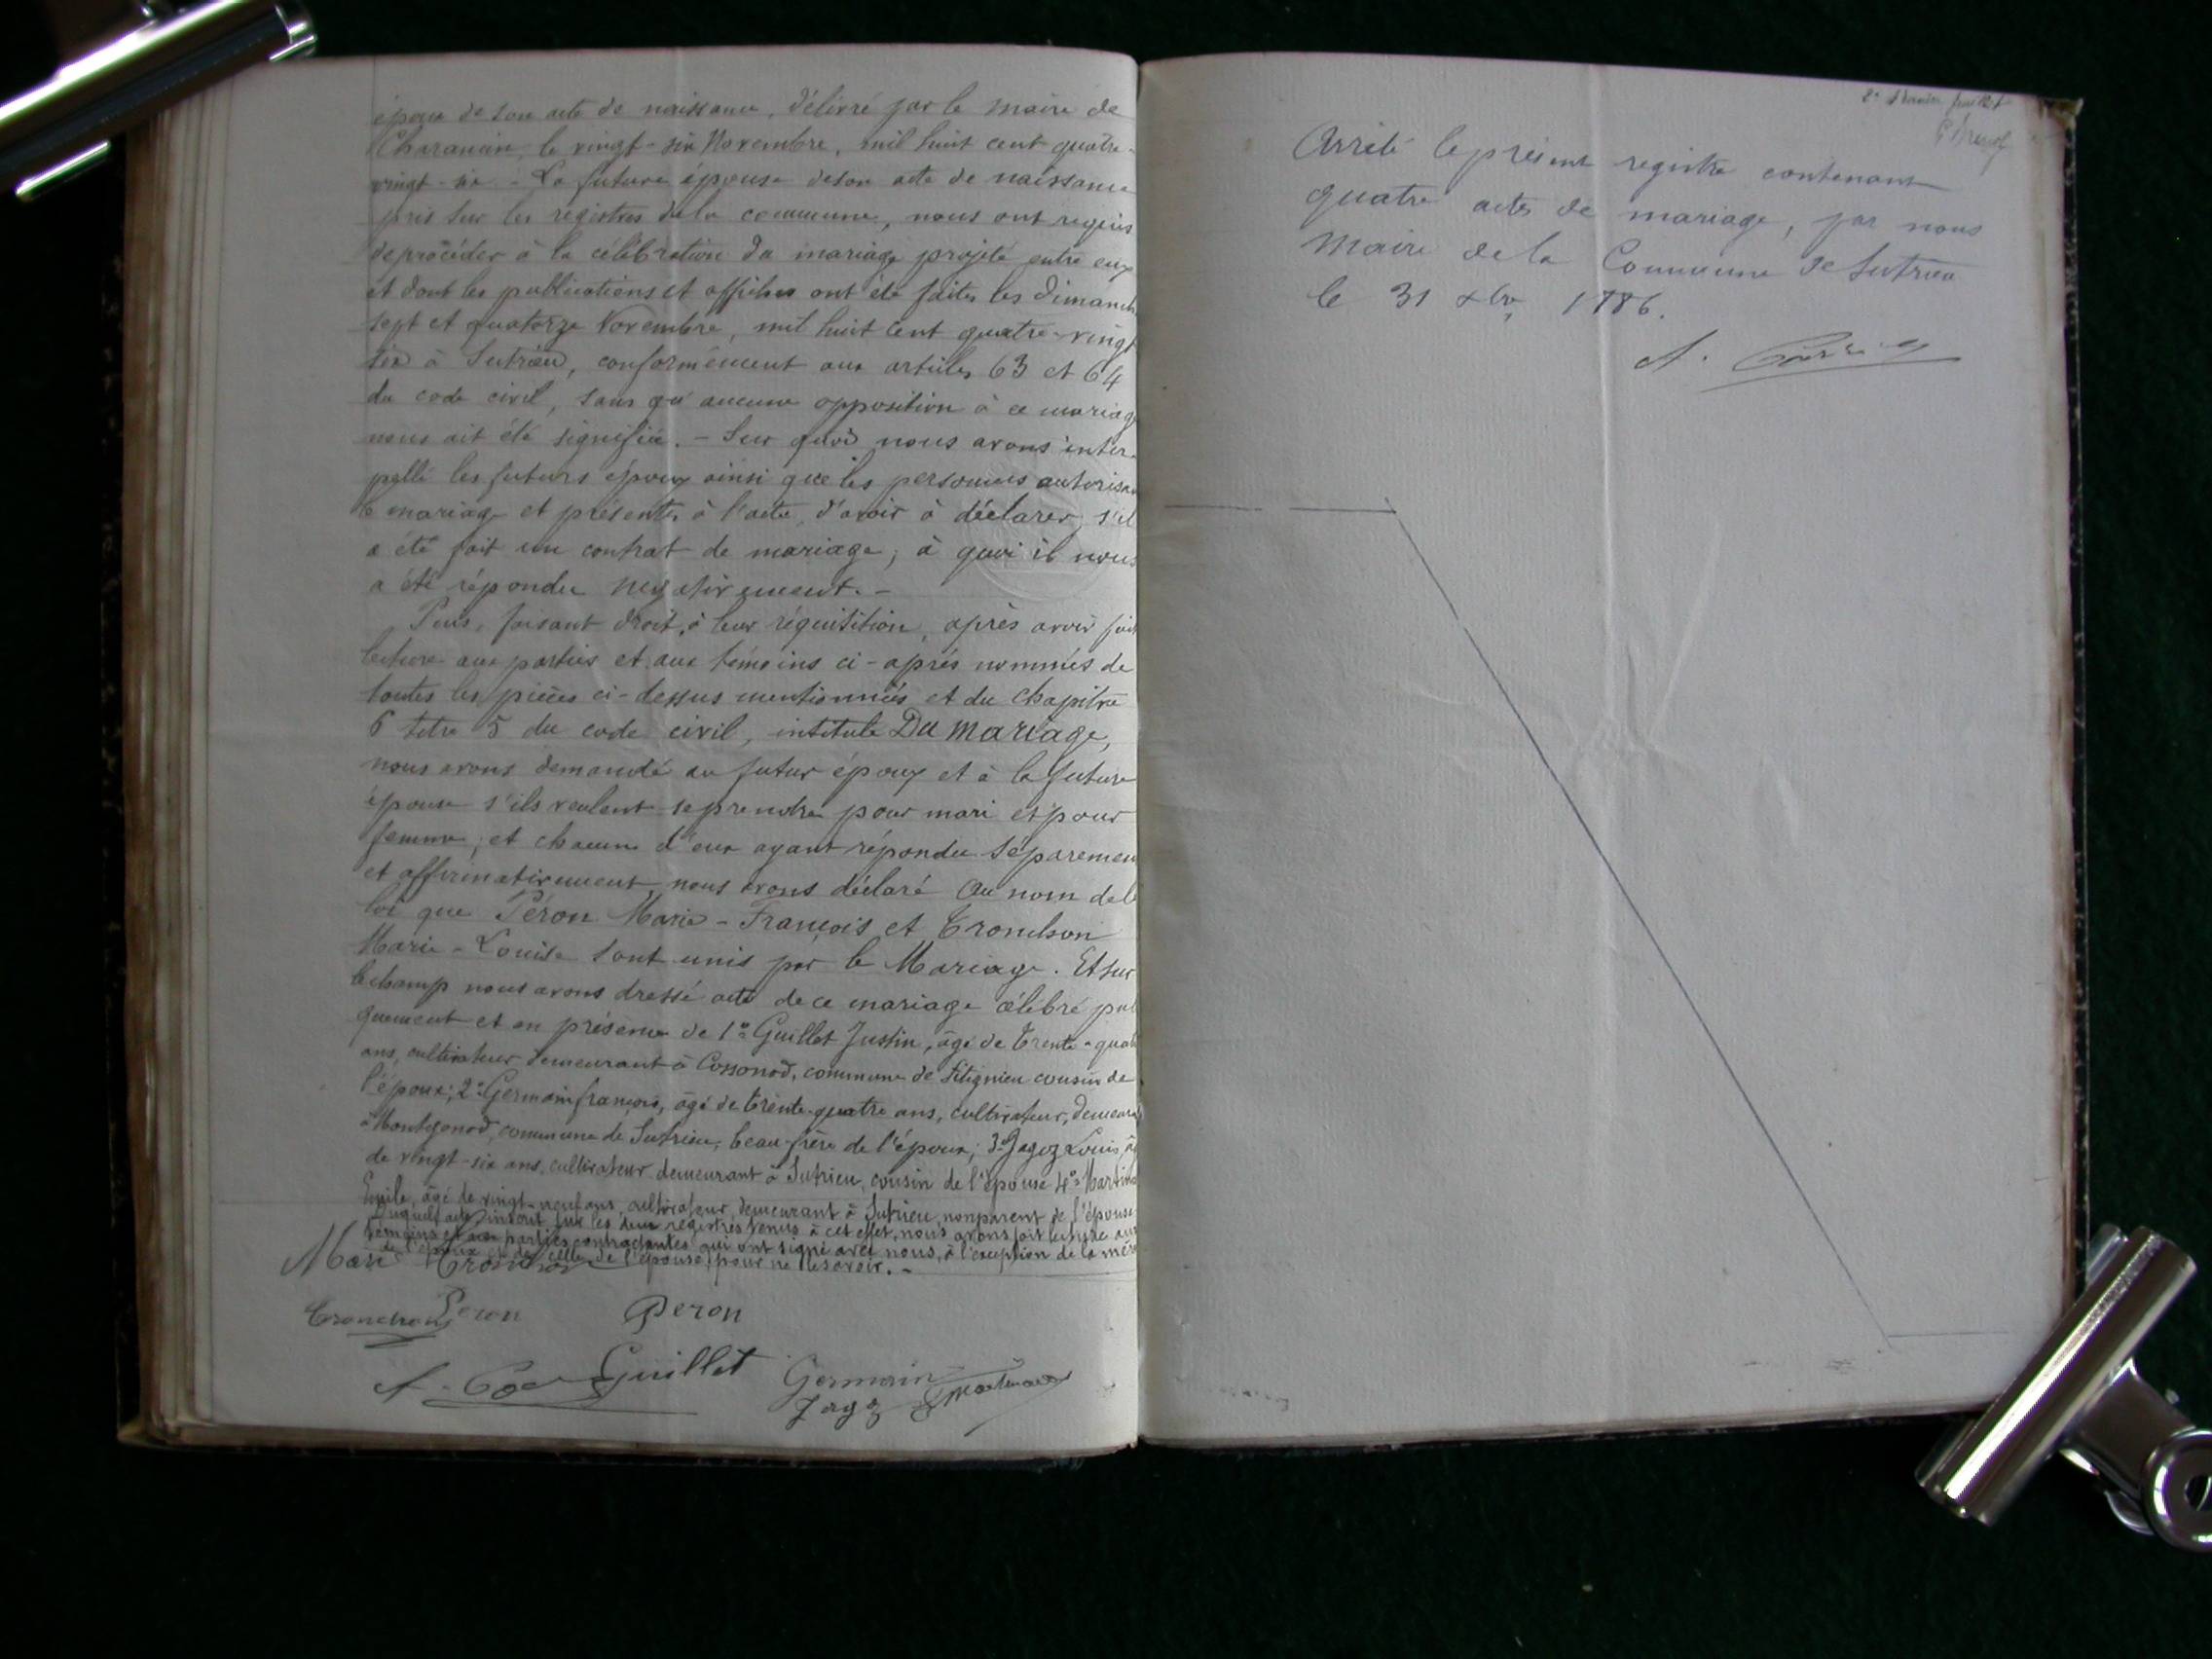 époux de son acte de naissance, délivré par le Maire de
le vingt-six Novembre, mil huit cent quatre-
vingt-six - La future épouse de son acte de naissance
pris sur les registres de la commune, nous ont requis
de procéder à la célébration du mariage projeté entre eux
et dont les publications et affiches ont été faites les Dimanch
sept et quatorze Novembre, mil huit cent quatre-vingt
six à Sutrieu, conformément aux articles 63 et 64
du code civil, sans qu'aucune opposition à ce mariage
nous ait été signifiée. - Sur quoi nous avons inter-
pellé les futurs époux ainsi que les personnes autorisan
le mariage et présentes à l'acte, d'avoir à déclarer, s'il
a été fait un contrat de mariage, à quoi il nous
a été répondu négativement. -
Puis, faisant droit à leur réquisition, après avoir fait
lecture aux parties et aux témoins ci-après nommés de
toutes les pièces ci-dessus mentionnées et du chapitre
6 titre 5 du code civil, intitulé Du Mariage,
nous avons demandé au futur époux et à la future
épouse s'ils veulent se prendre pour mari et pour
femme, et chacun d'eux ayant répondu séparemen
et affirmativement, nous avons déclaré au nom de la
loi que Péron Marie-François et Tronchon
Marie-Louise sont unis par le Mariage. Et sur
le champ nous avons dressé acte de ce mariage célébré pub
quement et en présence de 1° Guillet Justin, âgé de trente-quatre
ans, cultivateur demeurant à Cossonod, commune de cousin de
l'époux; 2° Germain françois, âgé de trente-quatre ans, cultivateur, demeura
à Montgonod, commune de Sutrieu, beau-frère de l'époux; 3° Jagoz Louis, âg
de vingt-six ans, cultivateur demeurant à Sutrieu, cousin de l'épouse 4° Martin
Emile, âgé de vingt-neuf ans, cultivateur, demeurant à Sutrieu, non parent de l'épouse
Duquel acte inscrit sur les deux registres tenus à cet effet, nous avons fait lecture aux
témoins et aux parties contractantes qui ont signé avec nous, à l'exception de la mère
de l'époux et de celle de l'épouse pour ne le savoir. -
Marie Tronchon
Tronchon Peron Peron
Guillet Germain
Jagoz
Arrêté le présent registre contenant
quatre actes de mariage, par nous
Maire de la Commune de Sutrieu
le 31 xbre 1886.